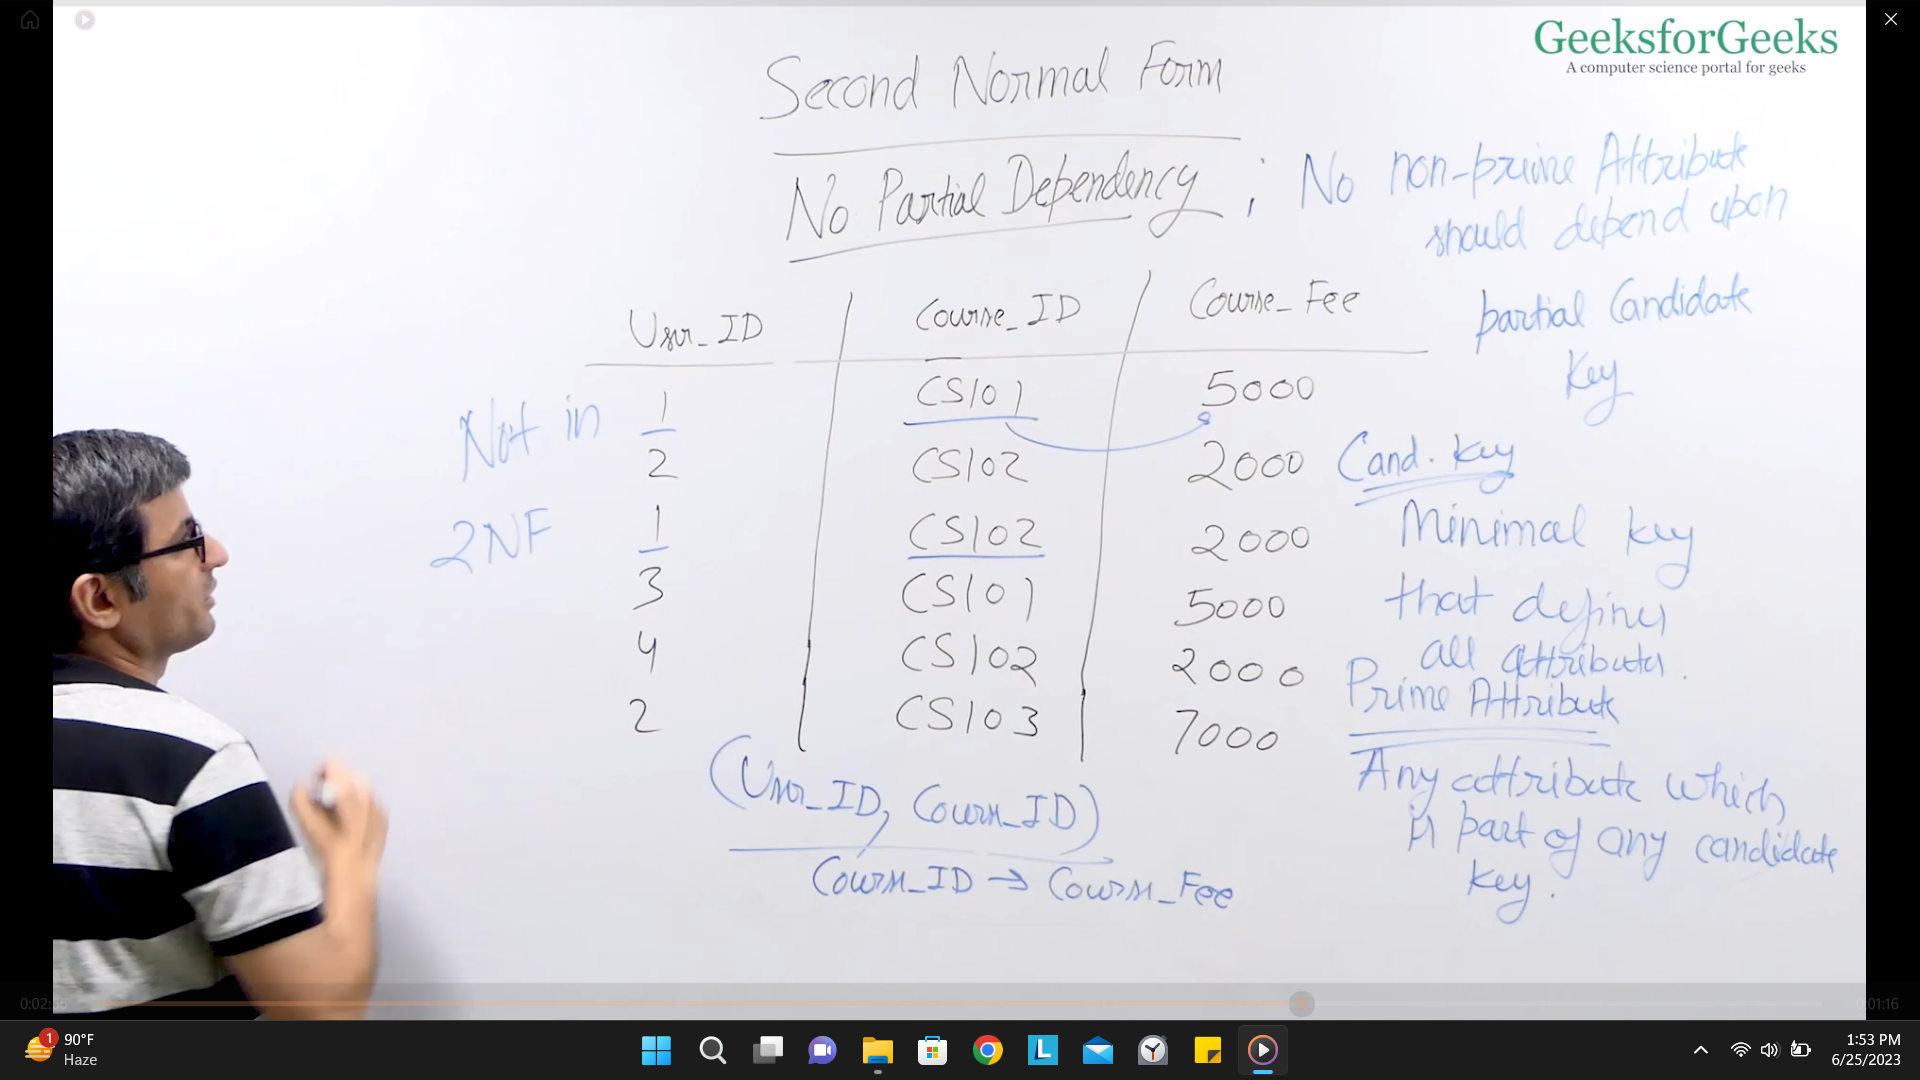 GeeksforGeeks
A computer science portal for geeks
Second Normal Form
No Partial Dependency ; No non-prime Attribute
should depend upon
partial Candidate
Key
User_ID Course_ID Course_Fee
1 CS101 5000
2 CS102 2000
1 CS102 2000
3 CS101 5000
4 CS102 2000
2 CS103 7000
Not in
2NF
Cand. Key
Minimal key
that defines
all attributes.
Prime Attribute
Any attribute which
is part of any candidate
key.
(User_ID, Course_ID)
Course_ID → Course_Fee
0:01:16
1
90°F
Haze
1:53 PM
6/25/2023